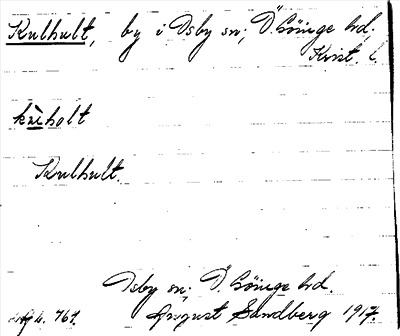 Kulhult, by i Osby sn; Ö. Göinge hd;
Krist. l.
kùholt
Kulhult.
Osby sn; Ö. Göinge hd.
August Sandberg 1917.
s. 761.